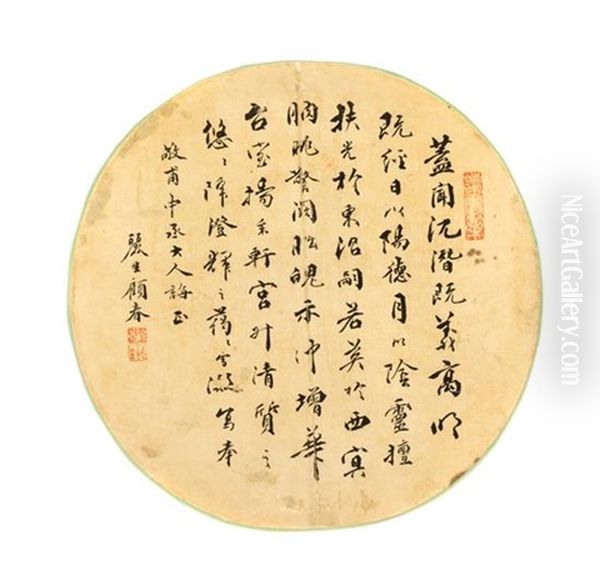 蓋聞沉潛既義高明
既經日以陽德月以陰靈擅
扶光於東沼嗣若英於西冥
朒朓警闕朏魄示沖增華
台室揚采軒宮升清質之
悠〻降澄輝之藹〻雪漁寫奉
敬甫中丞大人誨正
顧春
NiceArtGallery.com